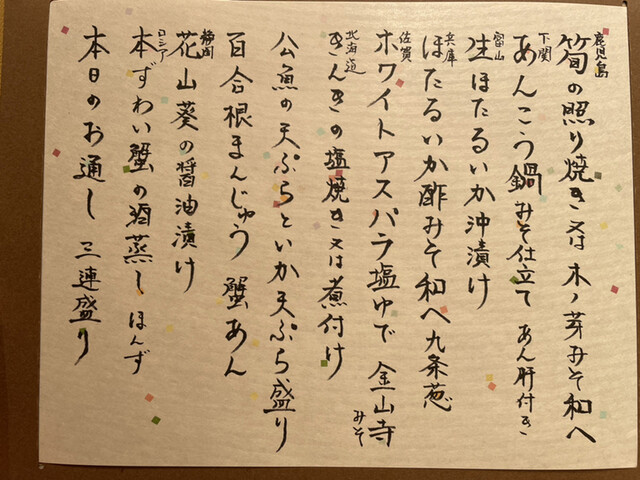 鹿児島 筍の照り焼き又は木ノ芽みそ和へ
下関 あんこう鍋みそ仕立て あん肝付き
富山 生ほたるいか沖漬け
兵庫 ほたるいか酢みそ和へ九条葱
佐賀 ホワイトアスパラ塩ゆで 金山寺みそ
北海道 きんきの塩焼き又は煮付け
公魚の天ぷらといか天ぷら盛り
百合根まんじゅう 蟹あん
静岡 花山葵の醤油漬け
ロシア 本ずわい蟹の酒蒸し ほんず
本日のお通し 三連盛り